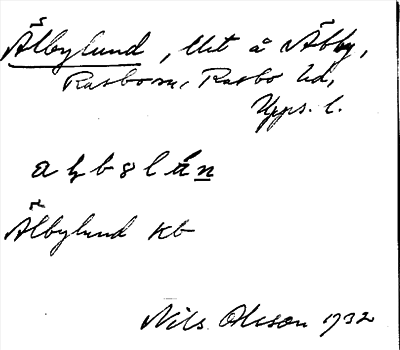 Ålbylund, lht å Åbby,
Rasbo sn, Rasbo hd,
Upps. l.
Ålbylund kb
Nils Olsson 1932